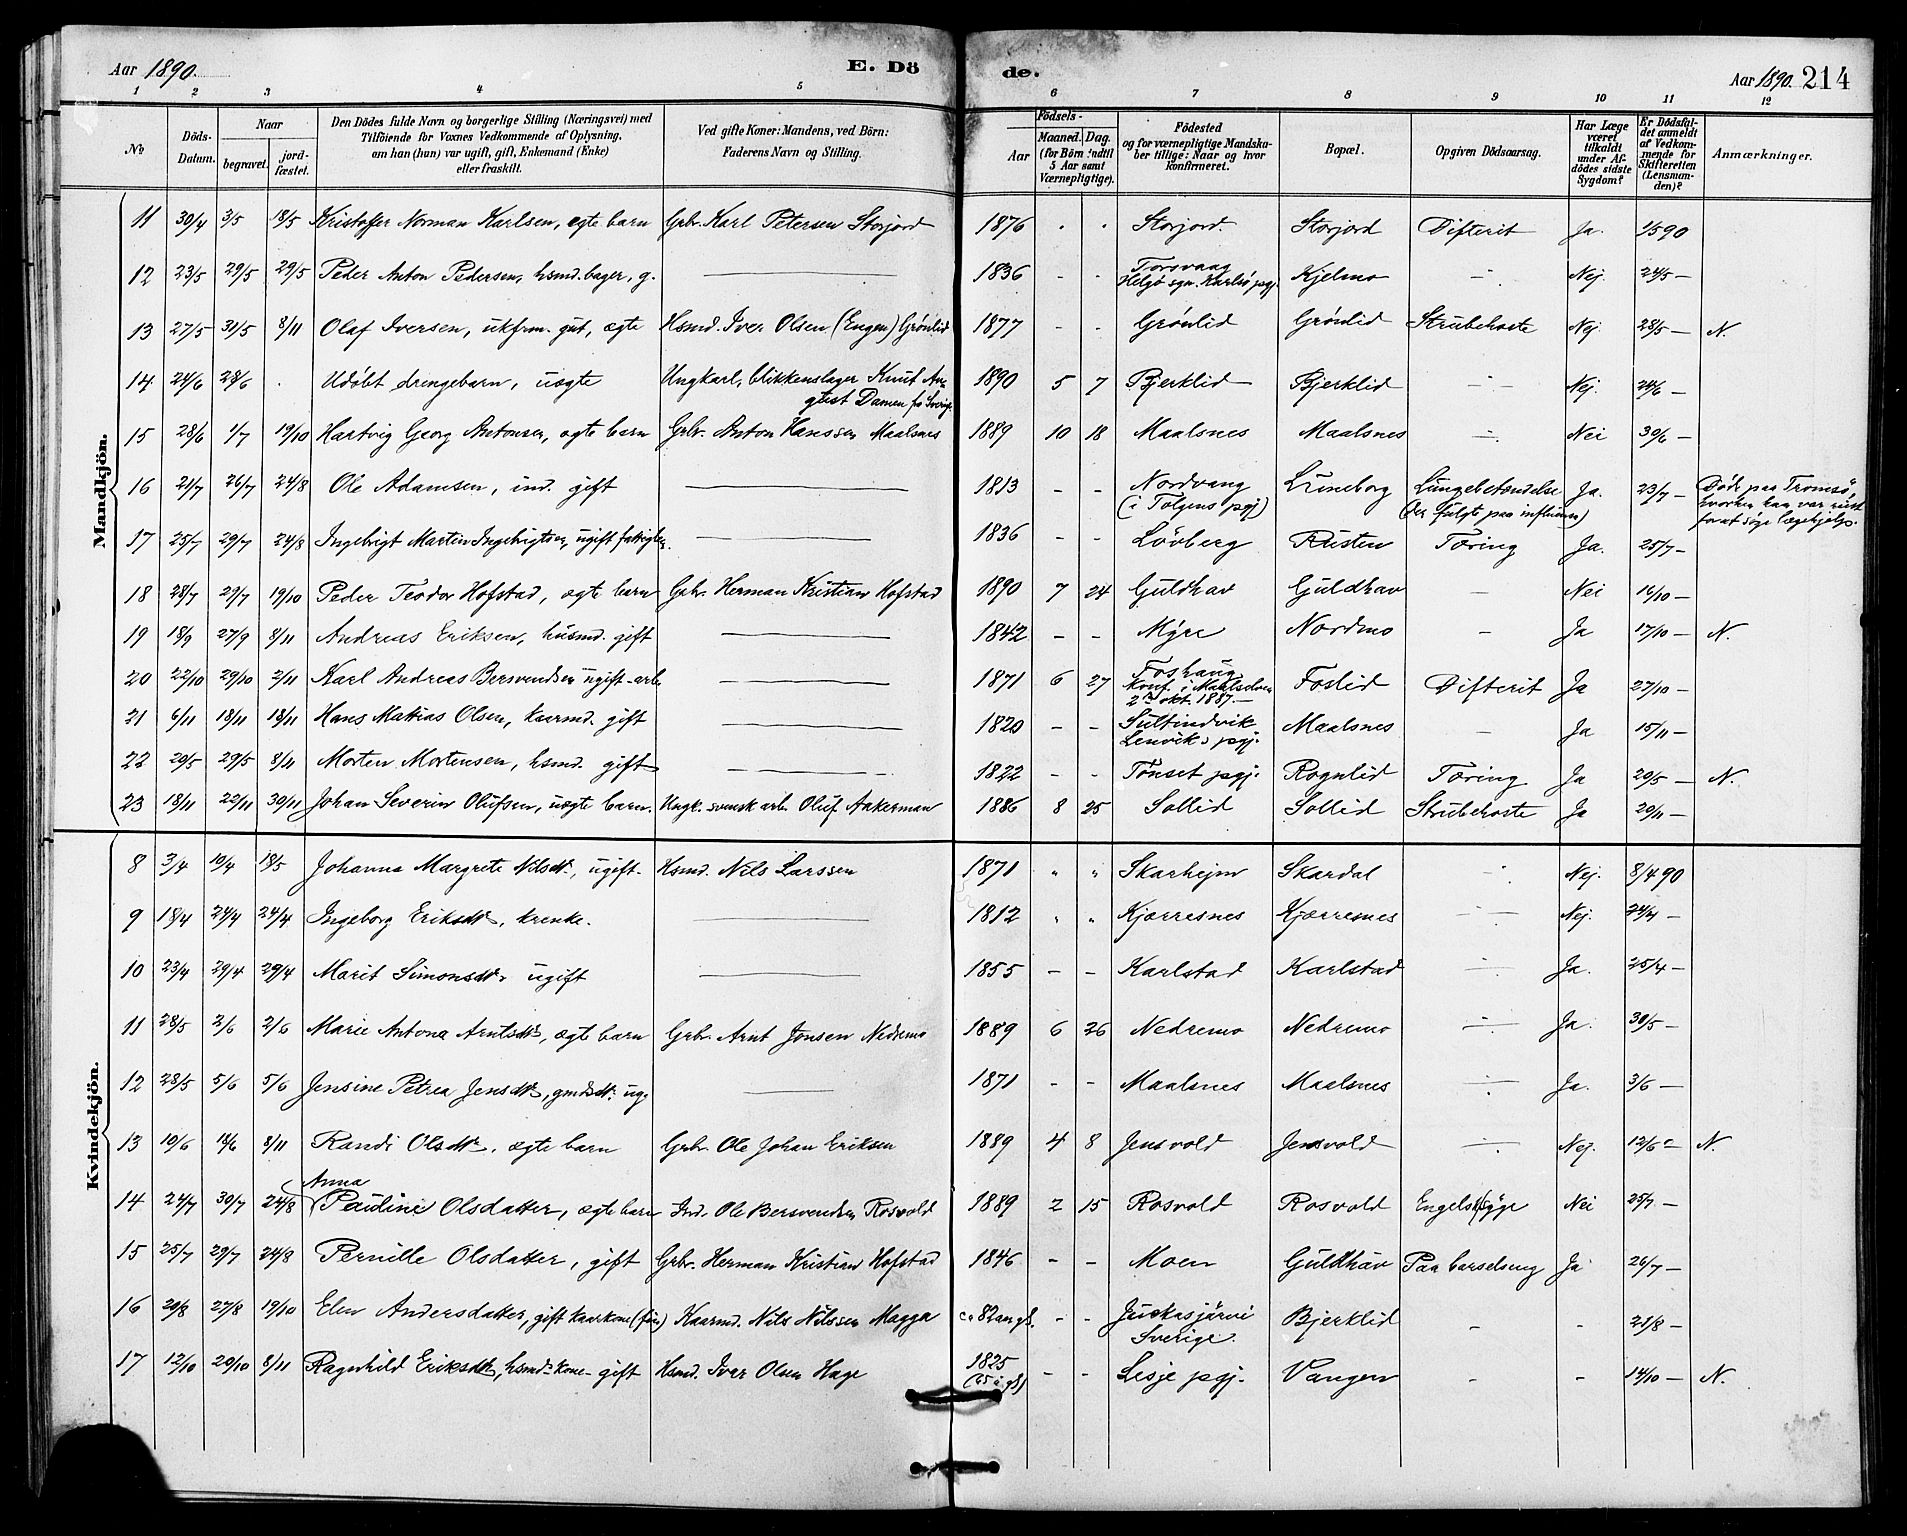 Aar 1890. E. Dö de. Aar 1890. 214
1 2 3 4 5 6 7 8 9 10 11 12
No
Döds-Datum.
Naar
begravet.
jord-fæstet.
Den Dödes fulde Navn og borgerlige Stilling (Næringsvei) med
Tilföiende for Voxnes Vedkommende af Oplysning,
om han (hun) var ugift, gift, Enkemand (Enke)
eller fraskilt.
Ved gifte Koner: Mandens, ved Börn:
Faderens Navn og Stilling.
Födsels-
Aar
Maaned. Dag.
(for Börn indtil
5 Aar samt
Værnepligtige).
Födested
og for værnepligtige Mandska-
ber tillige: Naar og hvor
konfirmeret.
Bopæl.
Opgiven Dödsaarsag.
Har Læge
været
tilkaldt
under Af-
dödes sidste
Sygdom?
Er Dödsfal-
det anmeldt
af Vedkom-
mende for
Skifteretten
(Lensman-
den)?
Anmærkninger.
Mandkjön.
11 30/4 3/5 18/5 Kristoffer Norman Karlsen, ægte barn Grbr. Karl Petersen Storjord 1876 " " Storjord. Storjord Difterit Ja. 1/5 90
12 23/5 29/5 29/5 Peder Anton Pedersen, hsmd. bager, g. — 1836 - - Torsvaag Helgø sgn. Karlsø pgj. Kjelmo - Nej. 24/5 —
13 27/5 31/5 8/11 Olaf Iversen, ukfrm. gut, ægte Hsmd. Iver Olsen (Engen) Grønlid 1877 - - Grønlid Grønlid Strubehoste Nej 28/5 — N.
14 24/6 28/6 . Udøbt drengebarn, uægte Ungkarl, blikkenslager Knut Au-
gust Damen fra Sverige 1890 5 7 Bjerklid Bjerklid - Nej. 24/6 —
15 28/6 1/7 19/10 Hartvig Georg Antonsen, ægte barn Grbr. Anton Hanssen Maalsnes 1889 10 18 Maalsnes Maalsnes - Nei 30/6 —
16 21/7 26/7 24/8 Ole Adamsen, ind. gift — 1813 - - Nordvang (i Tolgens pgj) Luneborg Lungebetændelse (der fulgte paa influensa) Ja. 23/7 — Døde paa Tromsø,
hvorhen han var reist
for at søge lægehjelp.
17 25/7 29/7 24/8 Ingebrigt Martin Ingebrigtsen, ugift fattiglem. — 1836 - - Løvberg Rusten Tæring Ja. 25/7 —
18 28/7 29/7 19/10 Peder Teodor Hofstad, ægte barn Grbr. Herman Kristian Hofstad 1890 7 24 Guldhav Guldhav - Nei 16/10 —
19 18/9 27/9 8/11 Andreas Eriksen, husmd. gift — 1842 - - Myre Nordmo - Ja 17/10 — N.
20 22/10 29/10 2/11 Karl Andreas Bersvendsen ugift arb. — 1871 6 27 Foshaug Konf. i Maalselven 2den okt. 1887. — Foslid Difterit Ja 27/10 —
21 6/11 18/11 18/11 Hans Mattias Olsen, kaarmd. gift — 1820 - - Sultindvik Lenviks pgj. Maalsnes - Ja 15/11 —
22 20/5 29/5 8/11 Morten Mortensen, hsmd. gift — 1822 - - Tønset pgj. Rognlid Tæring Ja 20/5 — N.
23 18/11 22/11 30/11 Johan Severin Olufsen, uægte barn. Ungk. svensk arb. Oluf Aakerman 1886 8 25 Sollid Sollid Strubehoste Ja 20/11 —
Kvindekjön.
8 3/4 10/4 18/5 Johanna Margrete Nilsdtr., ugift Hsmd. Nils Larssen 1871 " " Skarhejm Skardal - Nej. 8/4 90
9 18/4 24/4 24/4 Ingeborg Eriksdtr, enke. — 1812 " " Kjærresnes Kjærresnes - Nej. 24/4 —
10 23/4 29/4 29/4 Marit Simonsdtr ugift — 1855 - - Karlstad Karlstad - Ja. 25/4 —
11 28/5 2/6 2/6 Marie Antona Arntsdtr, ægte barn Grbr. Arnt Jonsen Nedremo 1889 6 26 Nedremo Nedremo - Ja. 30/5 —
12 28/5 5/6 5/6 Jensine Petrea Jensdtr, gmdsdtr. ug. — 1871 - - Maalsnes Maalsnes - Ja. 3/6 —
13 10/6 18/6 8/11 Randi Olsdtr, ægte barn Grbr. Ole Johan Eriksen 1889 4 8 Jensvold Jensvold - Nej. 12/6 — N.
14 24/7 30/7 24/8 Anna Pauline Olsdatter, ægte barn Ind. Ole Bersvendsen Rosvold 1889 2 15 Rosvold Rosvold Engelsk syge Nei 25/7 —
15 25/7 29/7 24/8 Pernille Olsdatter, gift Grbr. Herman Kristian Hofstad 1846 - - Moen Guldhav Paa barselseng Ja 26/7 —
16 20/8 27/8 19/10 Elen Andersdatter, gift kaarkone (fin) Kaarmd. Nils Nilssen Magga ca 82 aar gl. - - Juckasjärvi Sverige. Bjerklid - - 21/8 —
17 12/10 20/10 8/11 Ragnhild Eriksdtr, hsmds kone gift Hsmd. Iver Olsen Hage 1825 (65 å. gl) - - Lesje pgj. Vangen - - 14/10 — N.